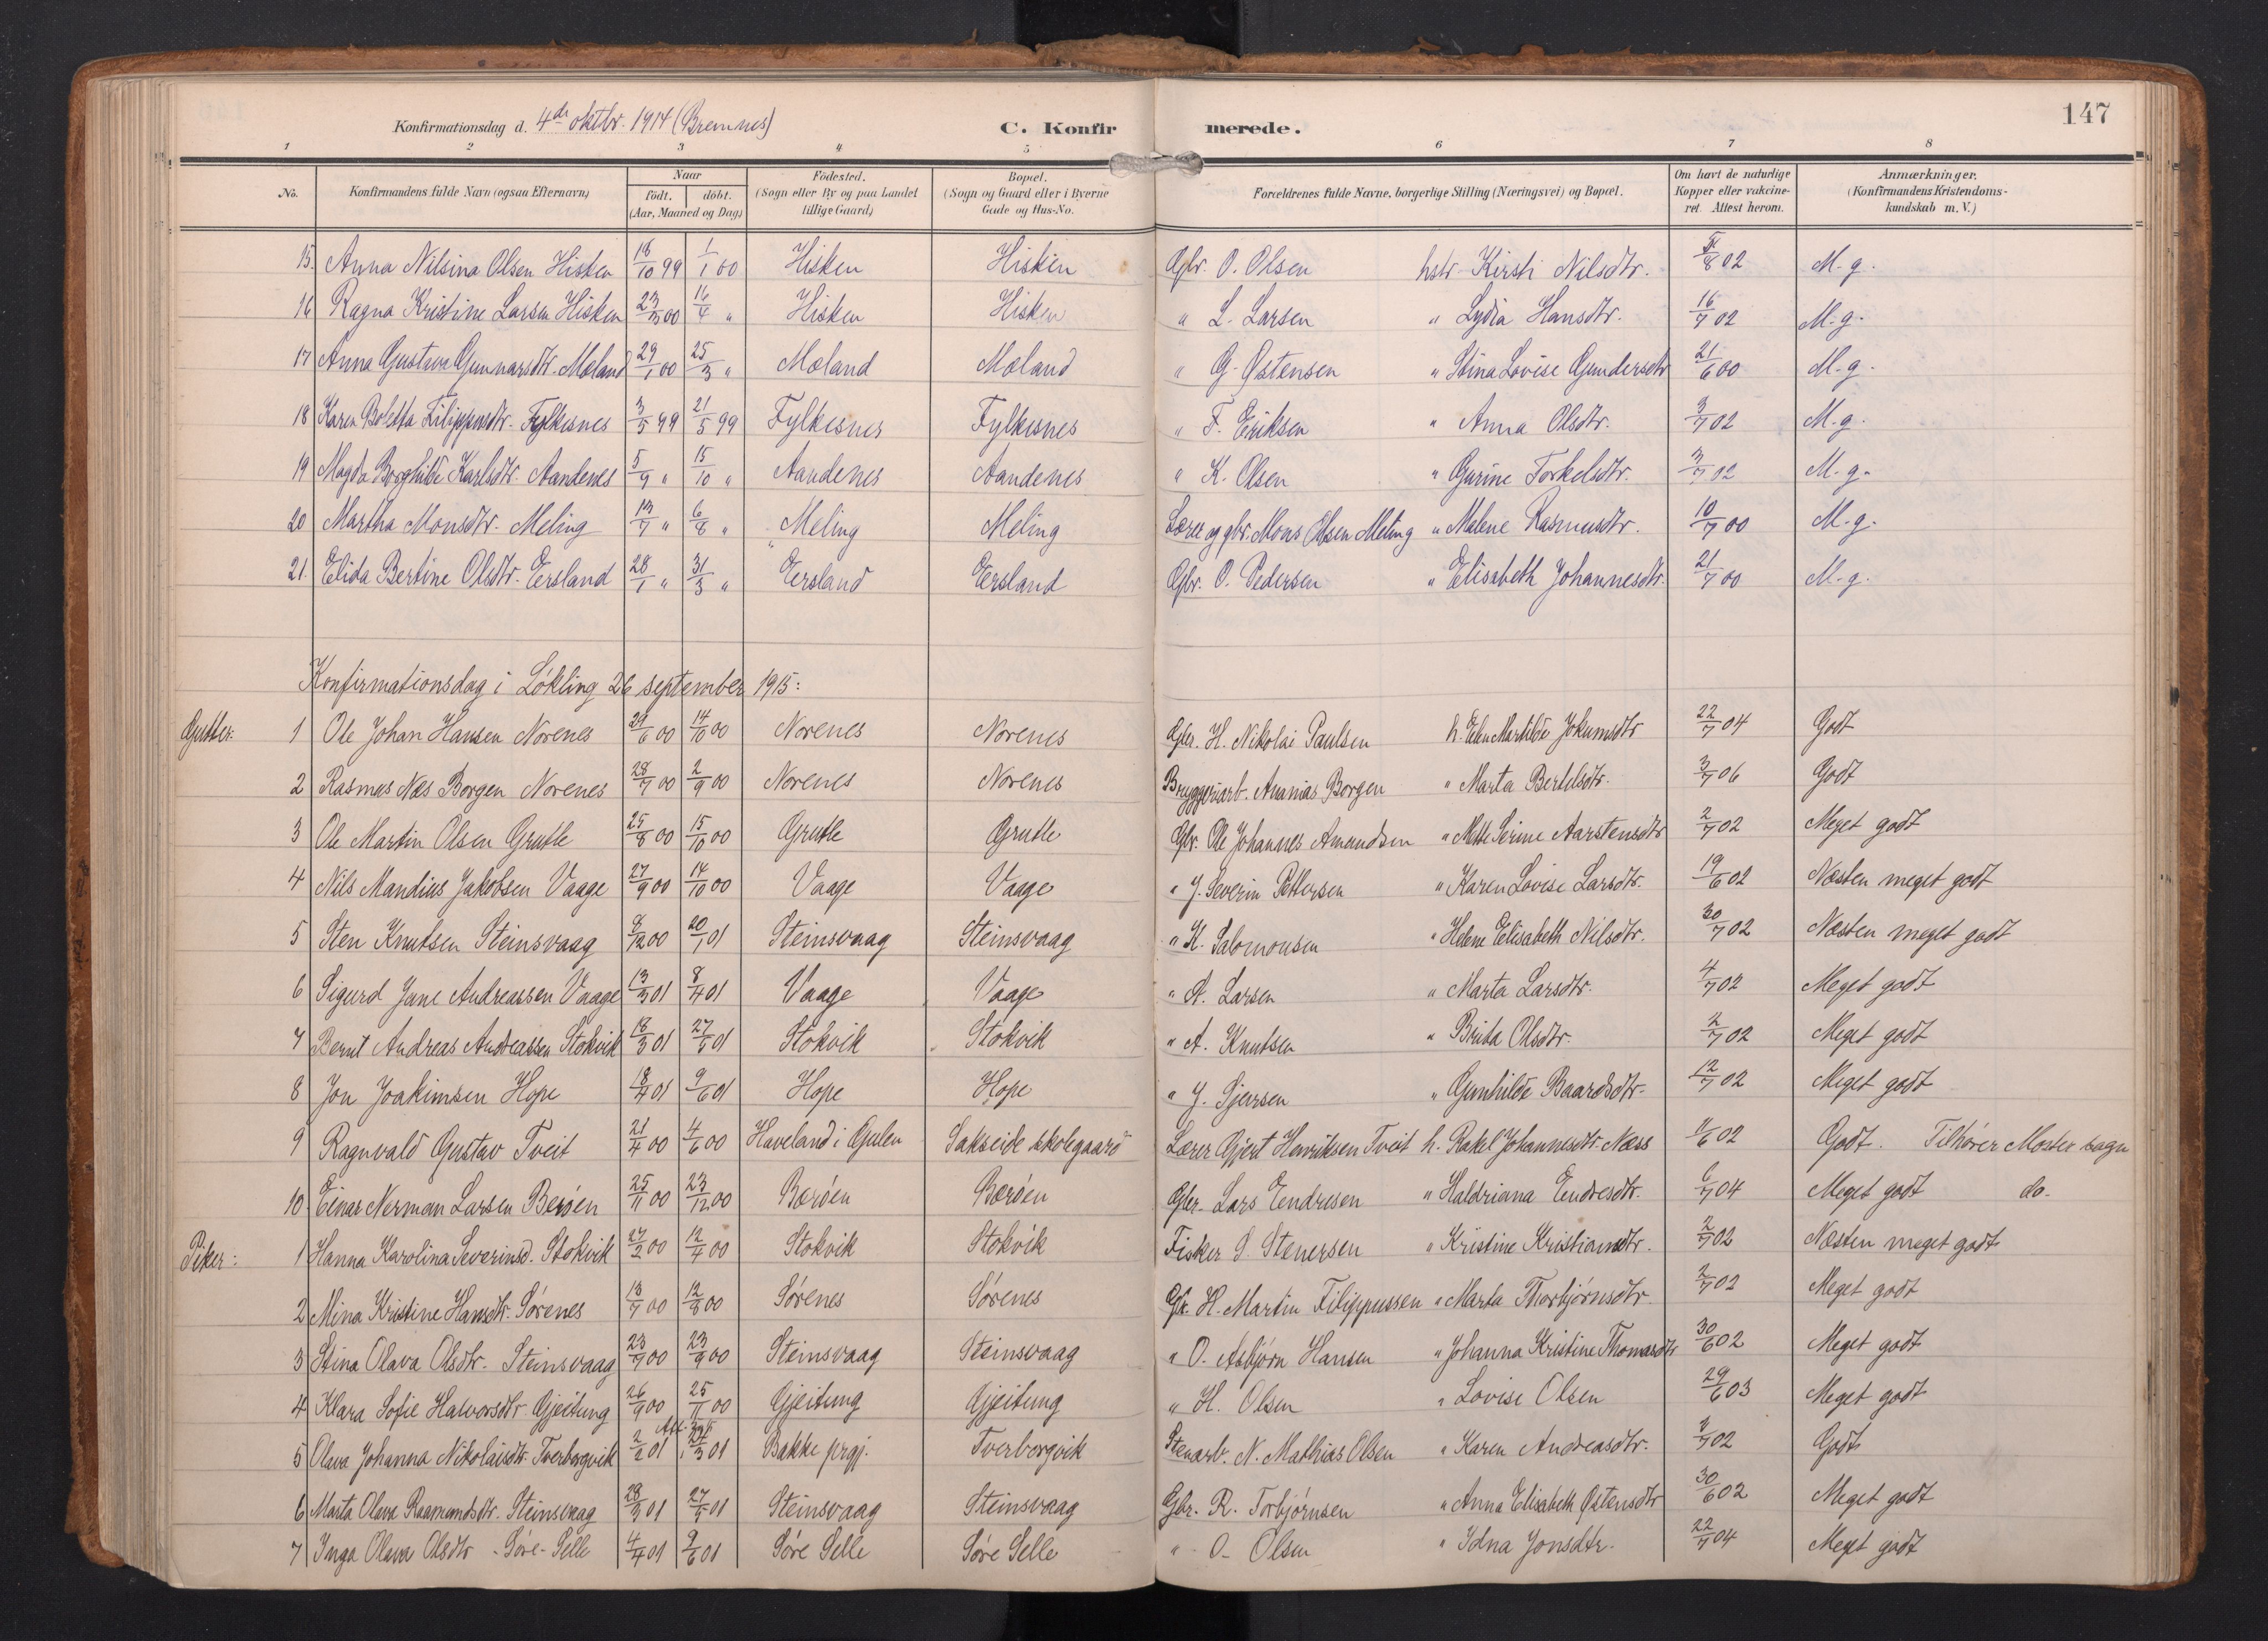 147
Konfirmationsdag d. 4de oktbr. 1914 (Bremnes) C. Konfirmerede.
1 2 3 4 5 6 7 8
No. Konfirmandens fulde Navn (ogsaa Efternavn) Naar födt. döbt. (Aar, Maaned og Dag) Födested. (Sogn eller By og paa Landet tillige Gaard) Bopæl. (Sogn og Gaard eller i Byerne Gade og Hus-No. Forældrenes fulde Navne, borgerlige Stilling (Næringsvei) og Bopæl. Om havt de naturlige Kopper eller vakcineret. Attest herom. Anmærkninger. (Konfirmandens Kristendomskundskab m. V.)
15. Anna Nilsina Olsen Hisken 18/10 99 1/1 00 Hisken Hisken Gbr. O. Olsen hstr. Kirsti Nilsdtr. 5/8 02 M. g.
16 Ragna Kristine Larsen Hisken 23/3 00 16/4 " Hisken Hisken " L. Larsen " Lydia Hansdtr. 16/7 02 M. g.
17 Anna Gustava Gunnarsdtr. Mæland 29/1 00 25/3 " Mæland Mæland " G. Østensen " Stina Lovise Gundersdtr 21/6 00 M. g.
18 Karen Boletta Filippusdtr. Fylkesnes 3/5 99 21/5 99 Fylkesnes Fylkesnes " F. Eriksen " Anna Olsdtr. 3/7 02 M. g.
19 Magda Borghilde Karlsdtr. Aandenes 5/9 " 15/10 " Aandenes Aandenes " K. Olsen " Gurine Torkelsdtr. 3/7 02 M. g.
20 Martha Monsdtr. Meling 13/7 " 6/8 " Meling Meling Lærer og gbr. Mons Olsen Meling " Malene Rasmusdtr. 10/7 00 M. g.
21. Elida Bertine Olsdtr. Eersland 28/1 " 31/3 " Eersland Eersland Gbr. O. Pedersen " Elisabeth Johannesdtr. 21/7 00 M. g.
Konfirmationsdag i Løkling 26 september 1915:
Gutter: 1 Ole Johan Hansen Norenes 29/6 00 14/10 00 Norenes Norenes Gbr. H. Nikolai Paulsen h. Elen Martilde Jokumsdtr 22/7 04 Godt
2 Rasmus Næs Borgen Norenes 28/7 00 2/9 00 Norenes Norenes Bryggeriarb. Ananias Borgen " Marta Bertelsdtr. 3/7 06 Godt
3 Ole Martin Olsen Grutle 25/8 00 15/10 00 Grutle Grutle Gbr. Ole Johannes Amundsen " Mette Serine Aarstensdtr 2/7 02 Meget godt
4 Nils Mandius Jakobsen Vaage 27/9 00 14/10 00 Vaage Vaage " J. Severin Pettersen " Karen Lovise Larsdtr. 19/6 02 Næsten meget godt
5 Sten Knutsen Steinsvaag 9/12 00 20/1 01 Steinsvaag Steinsvaag " K. Salomonsen " Helene Elisabeth Nilsdtr. 30/7 02 Næsten meget godt
6 Sigurd Jane Andreassen Vaage 13/3 01 8/4 01 Vaage Vaage " A. Larsen " Marta Larsdtr. 4/7 02 Meget godt
7 Bernt Andreas Andreassen Stokvik 18/3 01 27/5 01 Stokvik Stokvik " A. Knutsen " Brita Olsdtr. 2/7 02 Meget godt
8 Jon Joakimsen Hope 18/4 01 9/6 01 Hope Hope " J. Sjursen " Gunhilde Baardsdtr. 12/7 02 Meget godt
9 Ragnvald Gustav Tveit 21/4 00 4/6 00 Haveland i Gulen Sakseide skolegaard Lærer Gjert Henriksen Tveit h. Rakel Johannesdtr. Næss /6 02 Godt. Tilhører Moster sogn
10 Einar Nerman Larsen Berøen 25/11 00 23/12 00 Berøen Berøen Gbr. Lars Endresen " Haldriana Endresdtr. 6/7 04 Meget godt do.
Piker: 1 Hanna Karolina Severinsd. Stokvik 27/2 00 12/4 00 Stokvik Stokvik Fisker S. Stenersen " Kristine Kristiansdtr. 2/7 02 Næsten meget godt
2 Mina Kristine Hansdtr. Sørenes 13/7 00 12/8 00 Sørenes Sørenes Gbr. H. Martin Filippussen " Marta Thorbjørnsdtr. 2/7 02 Meget godt
3 Stina Olava Olsdtr. Steinsvaag 23/7 00 23/9 00 Steinsvaag Steinsvaag " O. Asbjørn Hansen " Johanna Kristine Thomasdtr 30/6 02 Meget godt
4 Klara Sofie Halvorsdtr. Gjeitung 26/9 00 25/11 00 Gjeitung Gjeitung " H. Olsen " Lovise Olsen 29/6 03 Meget godt
5 Olava Johanna Nikolaisdtr. Tverborgvik 2/2 01 /3 01 Bakke prgj. Tverborgvik Stenarb. N. Mathias Olsen " Karen Andreasdtr. /7 02 Godt
6 Marta Olava Rasmundsdtr. Steinsvaag 28/3 01 27/5 01 Steinsvaag Steinsvaag Gbr. R. Torbjørnsen " Anna Elisabeth Østensdtr 30/6 02 Meget godt
7 Inga Olava Olsdtr - Søre-Selle 4/4 01 9/6 01 Søre Selle Søre Selle " O. Olsen " Idna Jonsdtr. 22/7 04 Meget godt